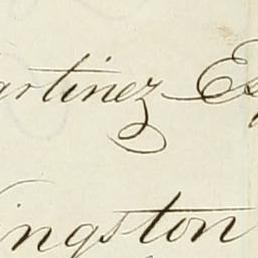 artinez Es
ingston